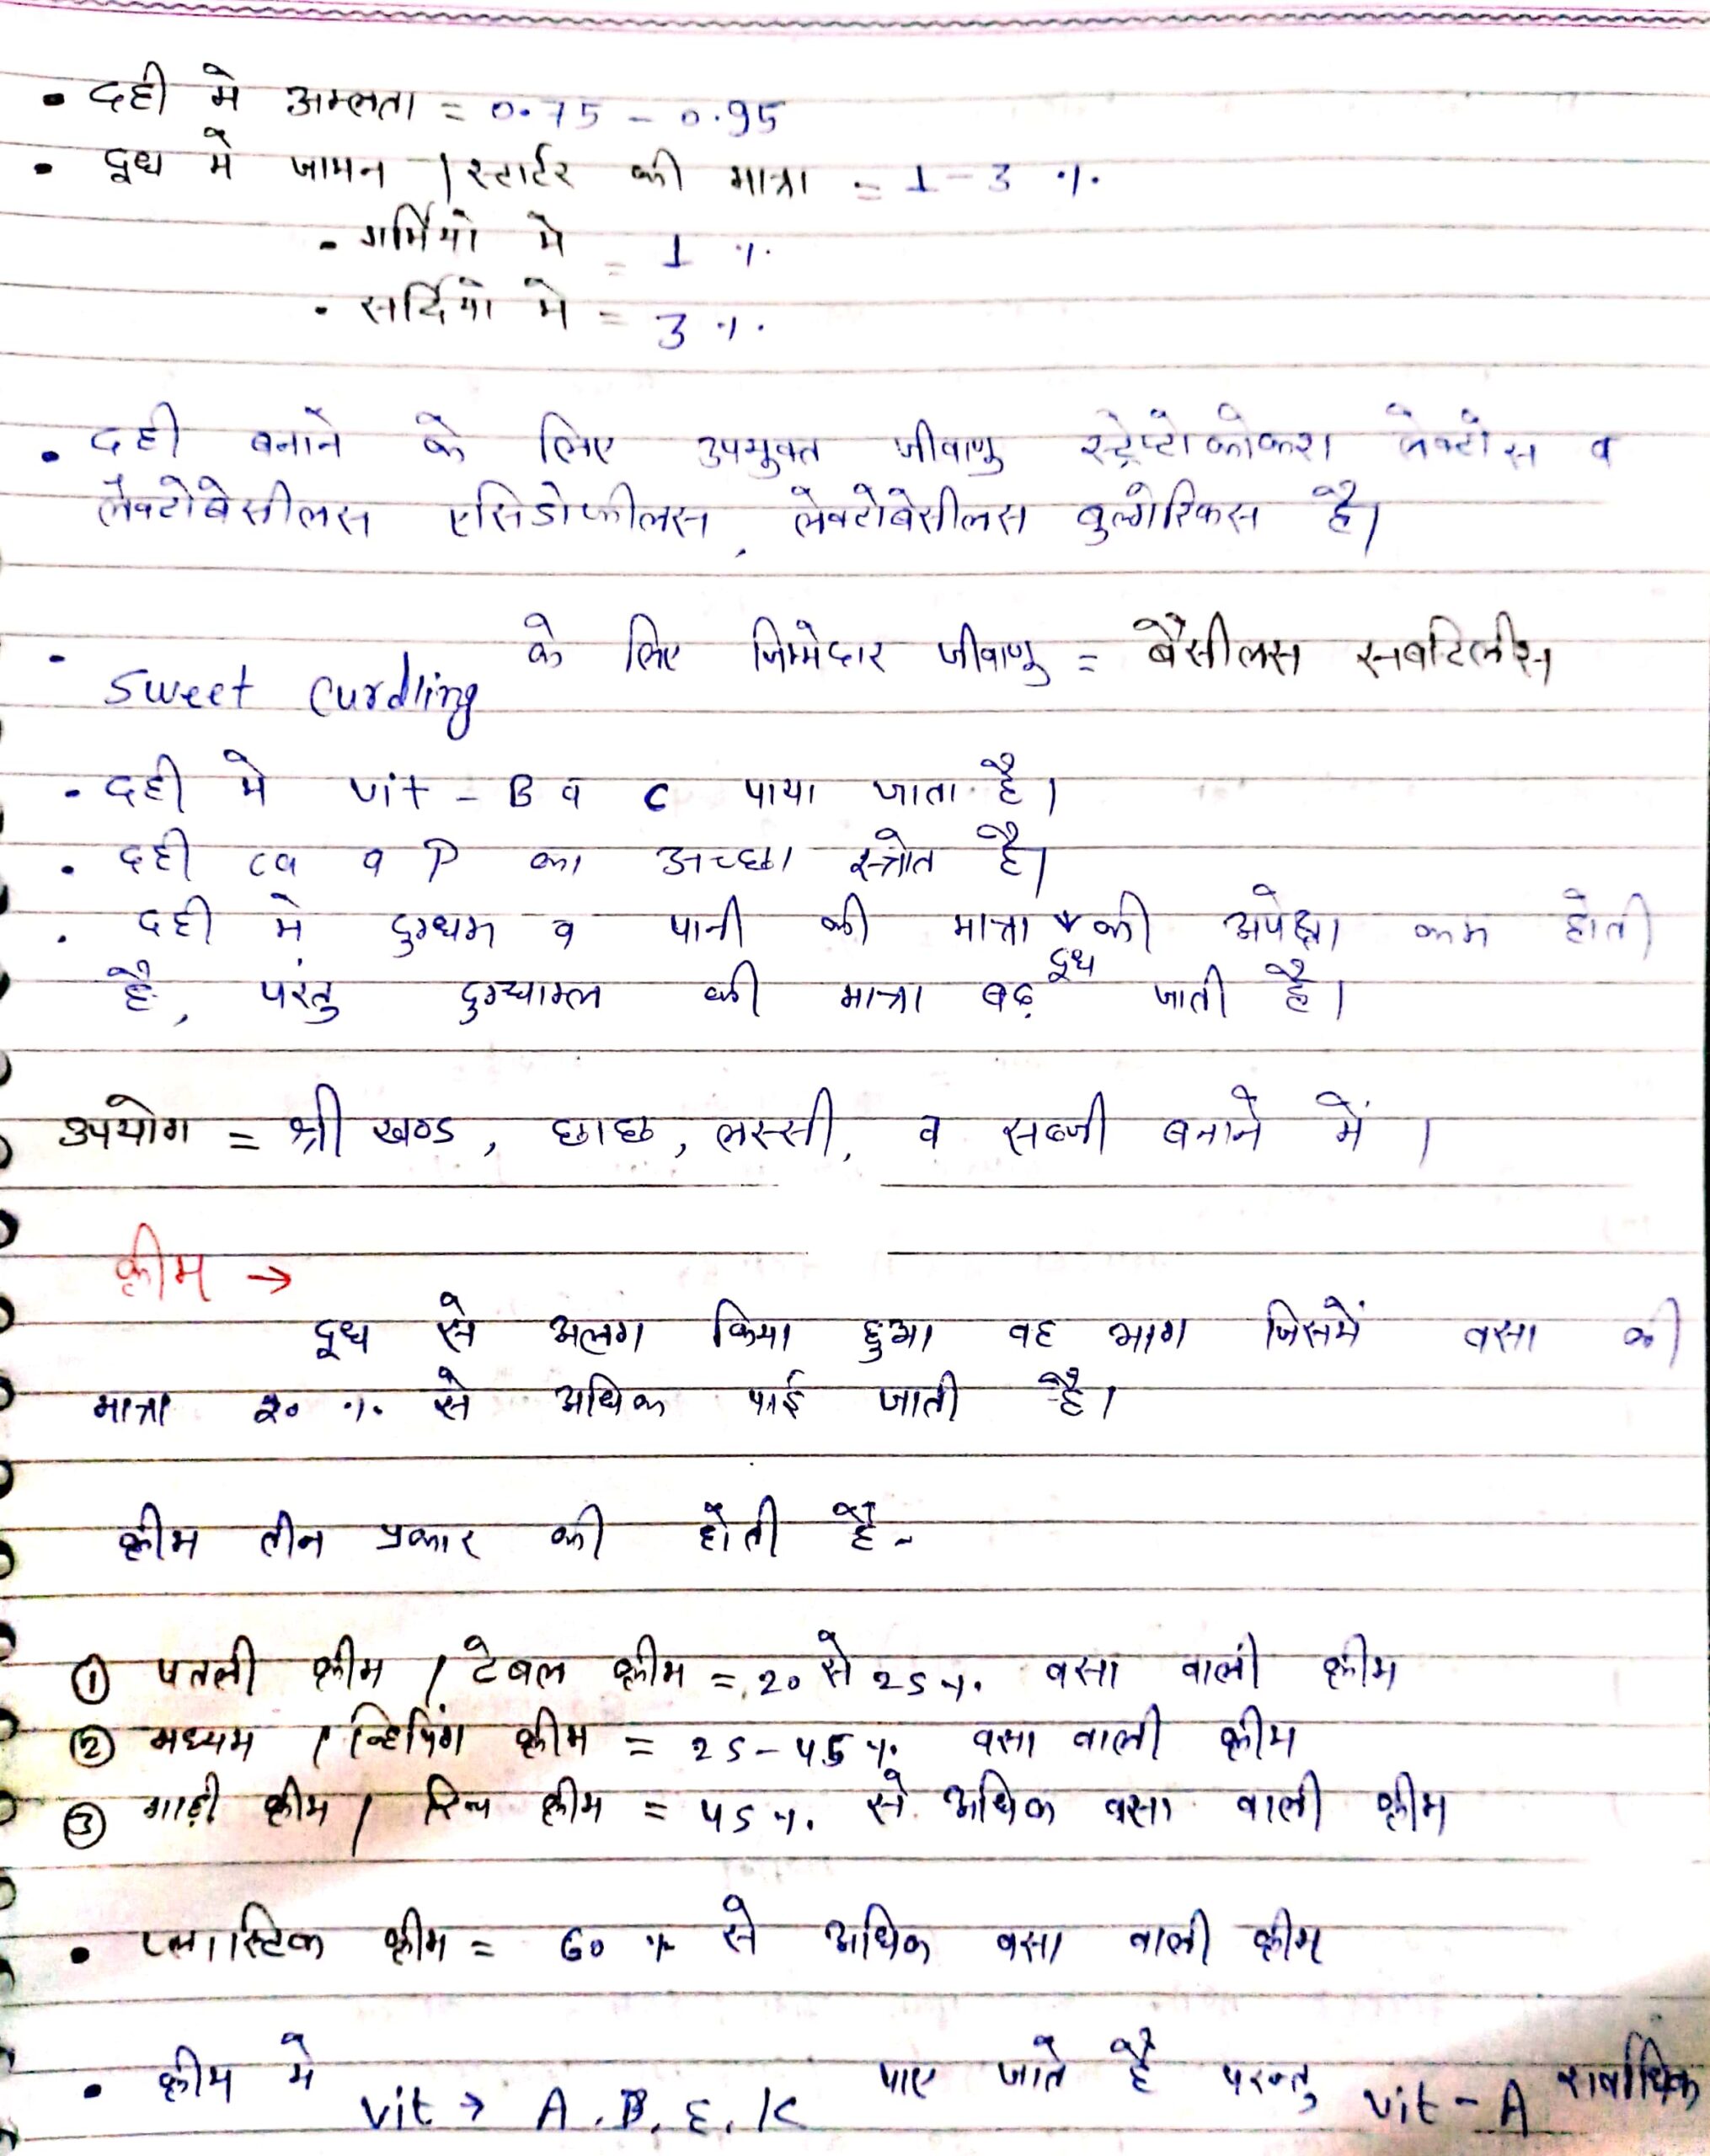 • दही मे अम्लता = 0.75 - 0.95
• दूध मे जामन / स्टार्टर की मात्रा = 1-3 %
• गर्मियो मे = 1 %
• सर्दियो मे = 3 %
• दही बनाने के लिए उपयुक्त जीवाणु स्ट्रेप्टोकोकस लेक्टोस व
लेक्टोबेसीलस एसिडोफीलस, लेक्टोबेसीलस बुल्गेरिकस है।
• Sweet Curdling के लिए जिम्मेदार जीवाणु = बैसीलस सबटिलीस
• दही मे vit - B व C पाया जाता है।
• दही ca व P का अच्छा स्त्रोत है।
• दही मे दुग्धम व पानी की मात्रा दूध की अपेक्षा कम होती
है, परंतु दुग्धाम्ल की मात्रा बढ़ जाती है।
उपयोग = श्री खण्ड, छाछ, लस्सी, व सब्जी बनाने में।
क्रीम →
दूध से अलग किया हुआ वह भाग जिसमें वसा की
मात्रा 20 % से अधिक पाई जाती है।
क्रीम तीन प्रकार की होती है -
① पतली क्रीम / टेबल क्रीम = 20 से 25 % वसा वाली क्रीम
② मध्यम / व्हिपिंग क्रीम = 25-45 % वसा वाली क्रीम
③ गाढ़ी क्रीम / रिच क्रीम = 45 % से अधिक वसा वाली क्रीम
• प्लास्टिक क्रीम = 60 % से अधिक वसा वाली क्रीम
• क्रीम मे vit → A, D, E, K पाए जाते है परन्तु vit - A सर्वाधिक